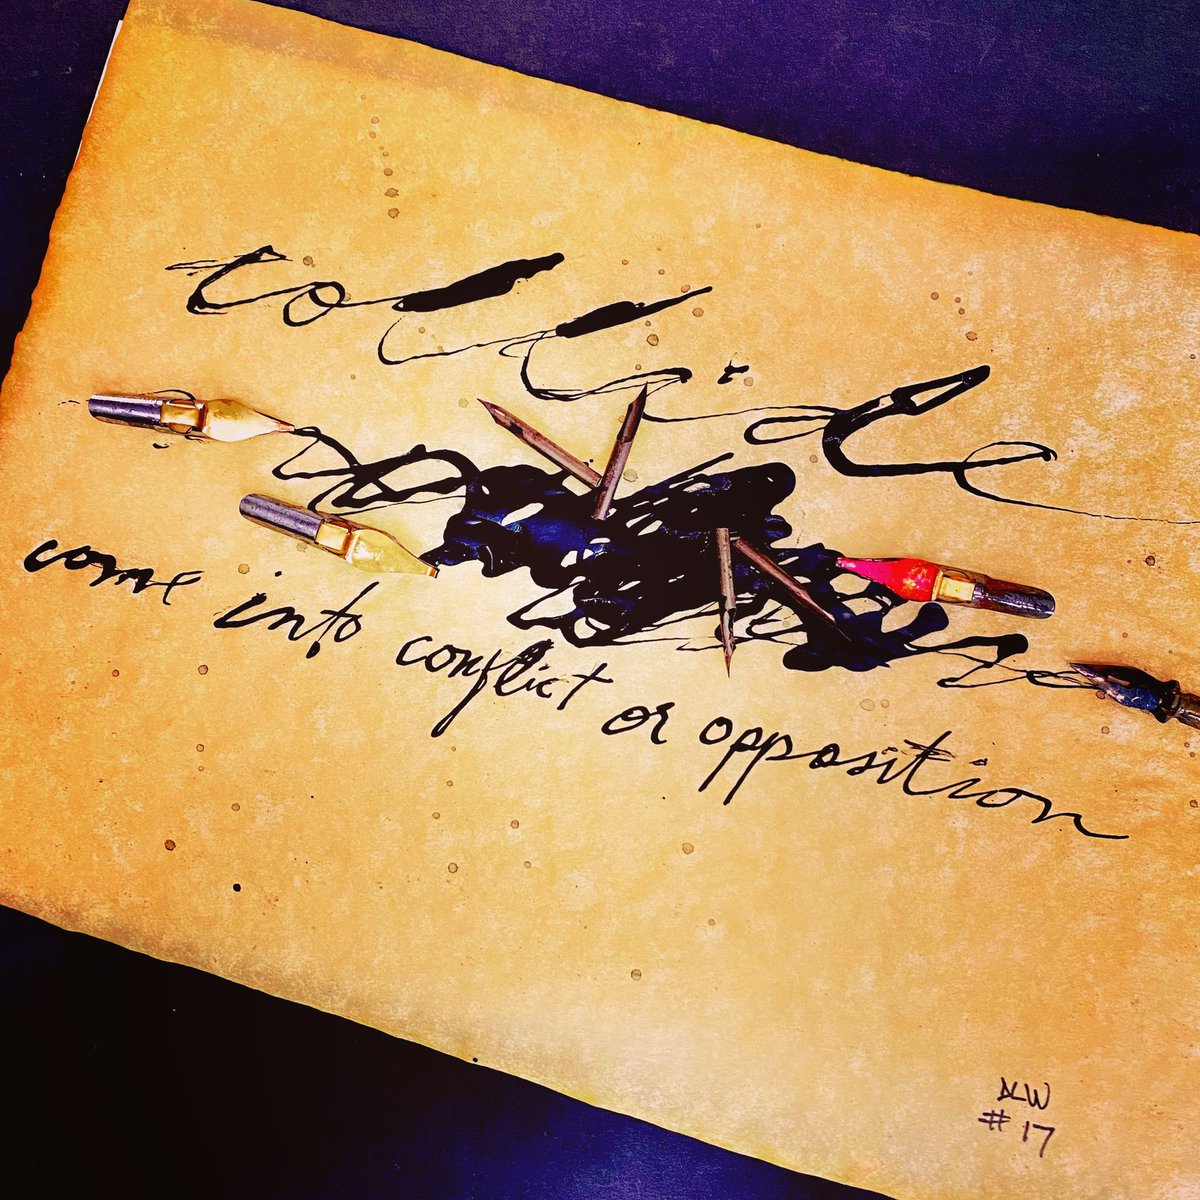 collide
come into conflict or opposition
DLW
# 17